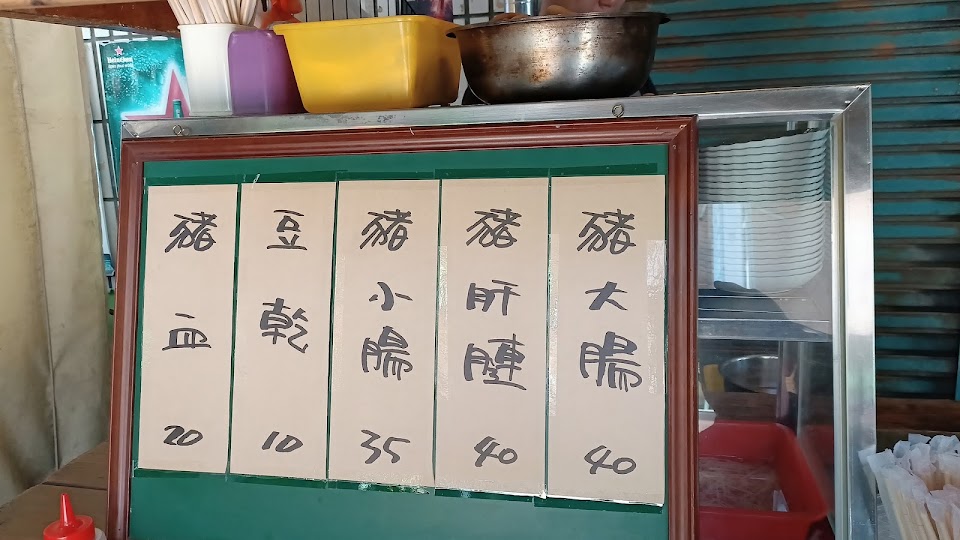 Heineken
豬大腸 40
豬肝腱 40
豬小腸 35
豆乾 10
豬血 20